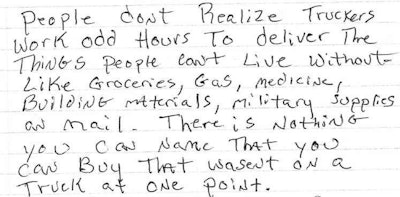 People dont Realize Truckers
work odd Hours To deliver The
THINGS People can't Live without-
Like Groceries, Gas, medicine,
Building mterials, military supplies
an mail. There is Nothing
you can Name That you
can Buy THAT wasent on a
Truck at one point.